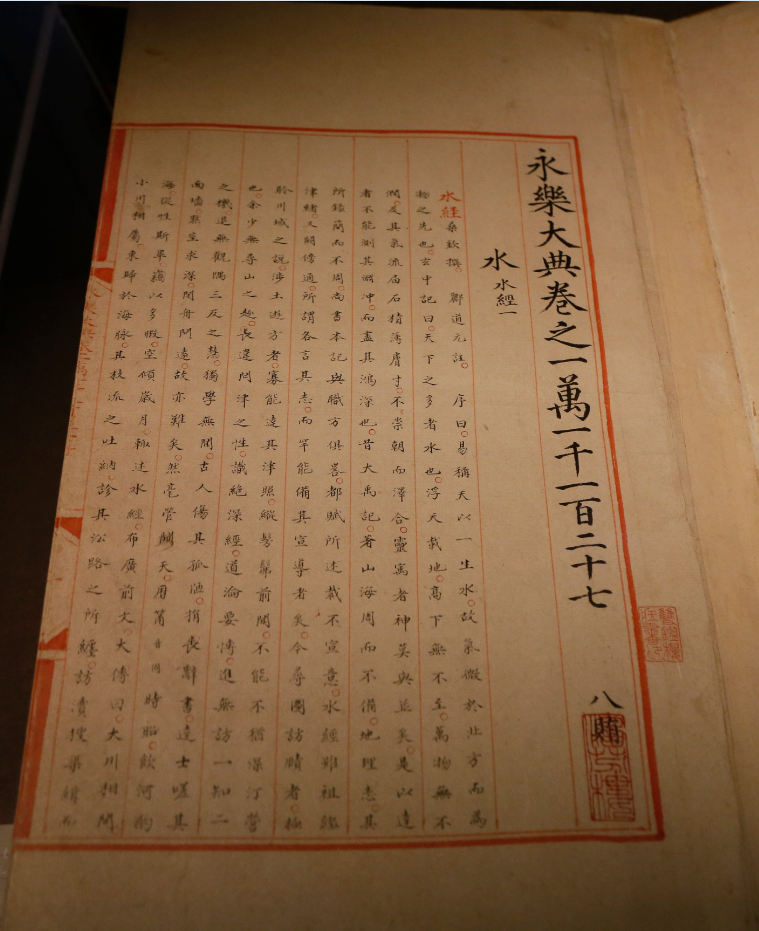 永樂大典卷之一萬一千一百二十七 八賄
水 水經一
水經 桑欽撰。 酈道元註。 序曰。易稱天以一生水。故氣微於北方而爲
物之先也。玄中記曰。天下之多者水也。浮天載地。高下無不至。萬物無不
潤。及其氣流屆石。精薄膚寸。不崇朝而澤合。靈寓者神莫與並矣。是以達
者不能測其淵沖。而盡其鴻深也。昔大禹記。著山海周而不備。地理志。其
所錄簡而不周。尚書本記與職方俱畧。都賦所述裁不宣意。水經雖粗綴
津緒。又闕傍通。所謂各言其志。而罕能備其宣導者矣。今尋圖訪賾者。極
聆川域之說。涉土遊方者。寡能達其津照。縱髣髴前聞。不能不猶深汀營
也。余少無尋山之趣。長違問津之性。識絕深經。道淪要博。進無訪一知二
之機。退無觀隅三反之慧。獨學無聞。古人傷其孤陋。捐喪辭書。達士嗟其
面墻。默室求深。閉舟問遠。故亦難矣。然毫管闚天。歷筩時昭。飲河酌
海。從性斯畢。竊以多暇。空傾歲月。輒述水經。布廣前文。大傳曰。大川相間
小川相屬。東歸於海。脉其枝流之吐納。診其沿路之所纏。訪瀆搜渠緝而